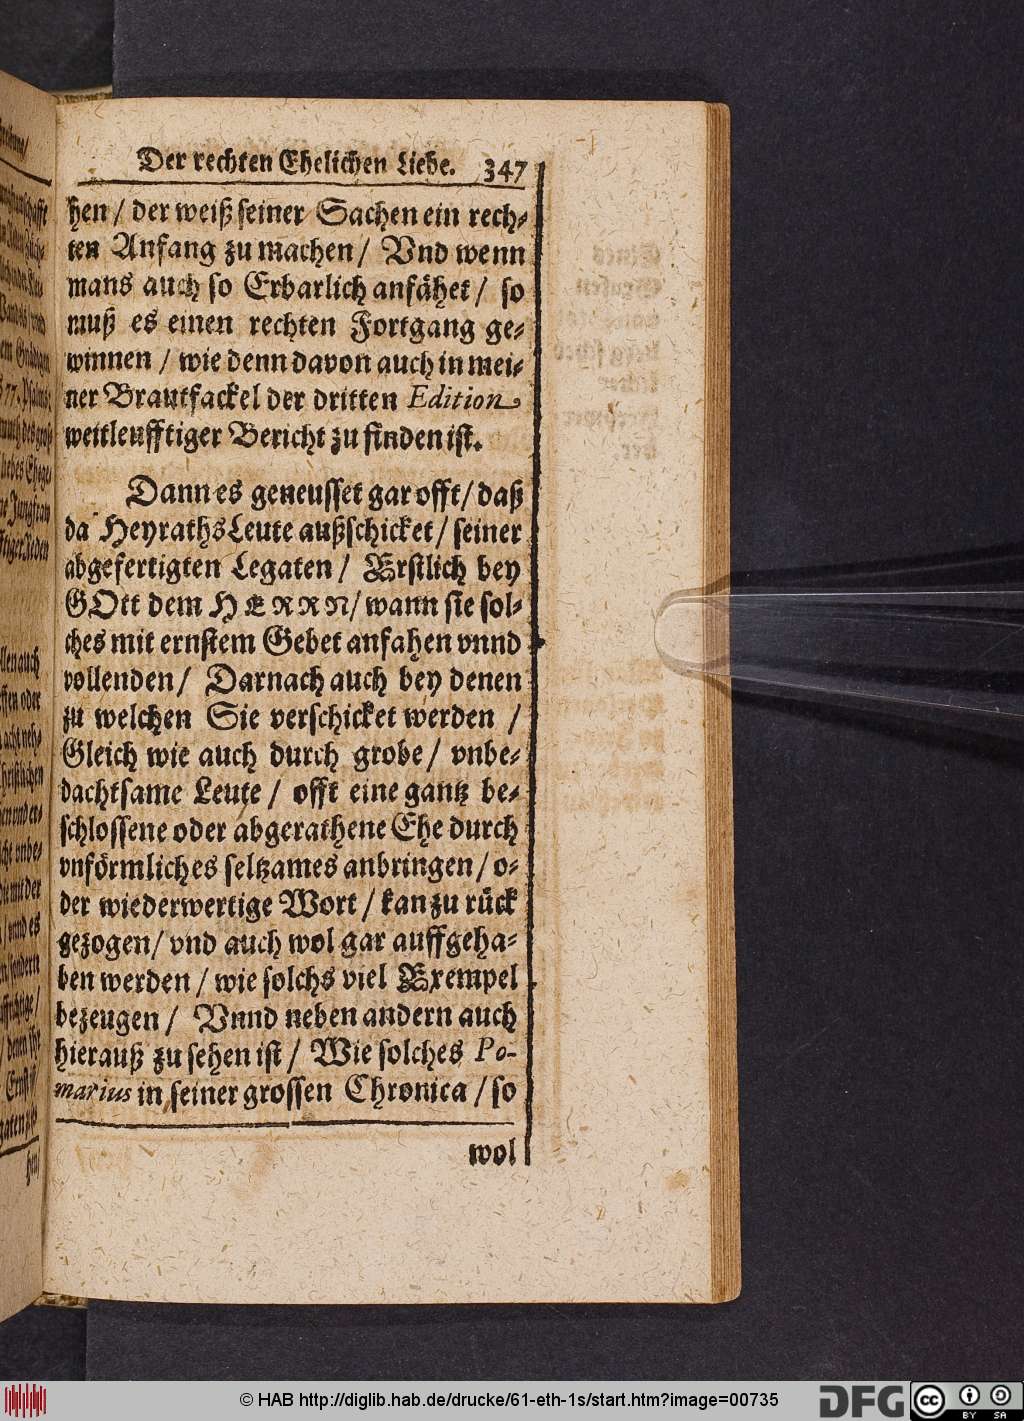 Der rechten Ehelichen Liebe. 347
hen / der weiß seiner Sachen ein rech-
ten Anfang zu machen / Vnd wenn
mans auch so Erbarlich anfähet / so
muß es einen rechten Fortgang ge-
winnen / wie denn davon auch in mei-
ner Brautfackel der dritten Edition
weitleufftiger Bericht zu finden ist.
Dann es geneusset gar offt / daß
da HeyrathsLeute außschicket / seiner
abgefertigten Legaten / Erstlich bey
GOtt dem HERRN / wann sie sol-
ches mit ernstem Gebet anfahen vnnd
vollenden / Darnach auch bey denen
zu welchen Sie verschicket werden /
Gleich wie auch durch grobe / vnbe-
dachtsame Leute / offt eine gantz be-
schlossene oder abgerathene Ehe durch
vnförmliches seltzames anbringen / o-
der wiederwertige Wort / kan zu rück
gezogen / vnd auch wol gar auffgeha-
ben werden / wie solchs viel Exempel
bezeugen / Vnnd neben andern auch
hierauß zu sehen ist / Wie solches Po-
marius in seiner grossen Chronica / so
wol
© HAB http://diglib.hab.de/drucke/61-eth-1s/start.htm?image=00735
DFG
cc BY SA